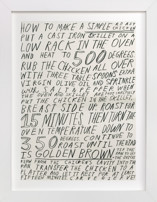 HOW TO MAKE A SIMPLE
PUT A CAST IRON SKILLET ON A
LOW RACK IN THE OVEN
AND HEAT TO 500 DEGREES.
RUB THE CHICKEN ALL OVER
WITH THREE TABLESPOONS EXTRA
VIRGIN OLIVE OIL AND SPRINKLE
WITH SALT & PEPPER. WHEN
PUT THE CHICKEN IN THE SKILLET
BREAST SIDE UP. ROAST FOR
15 MINUTES THEN TURN THE
OVEN TEMPERATURE DOWN TO
350 DEGREES. CONTINUE TO
ROAST UNTIL THE BIRD
IS GOLDEN BROWN
TRANSFER THE CHICKEN TO A
PLATTER AND LET IT REST FOR AT LEAST